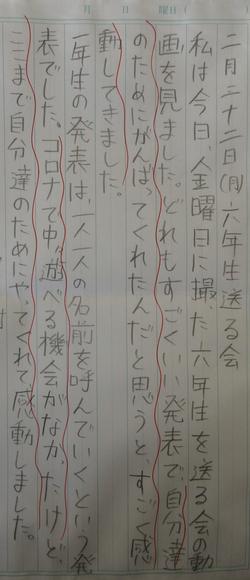 月 日 曜日(
二月二十二日(月) 六年生送る会
私は今日、金曜日に撮った六年生を送る会の動
画を見ました。どれもすごくいい発表で、自分達
のためにがんばってくれたんだと思うと、すごく感
動してきました。
一年生の発表は、一人一人の名前を呼んでいくという発
表でした。コロナで中々遊べる機会がなかったけど、
ここまで自分達のためにやってくれて感動しました。